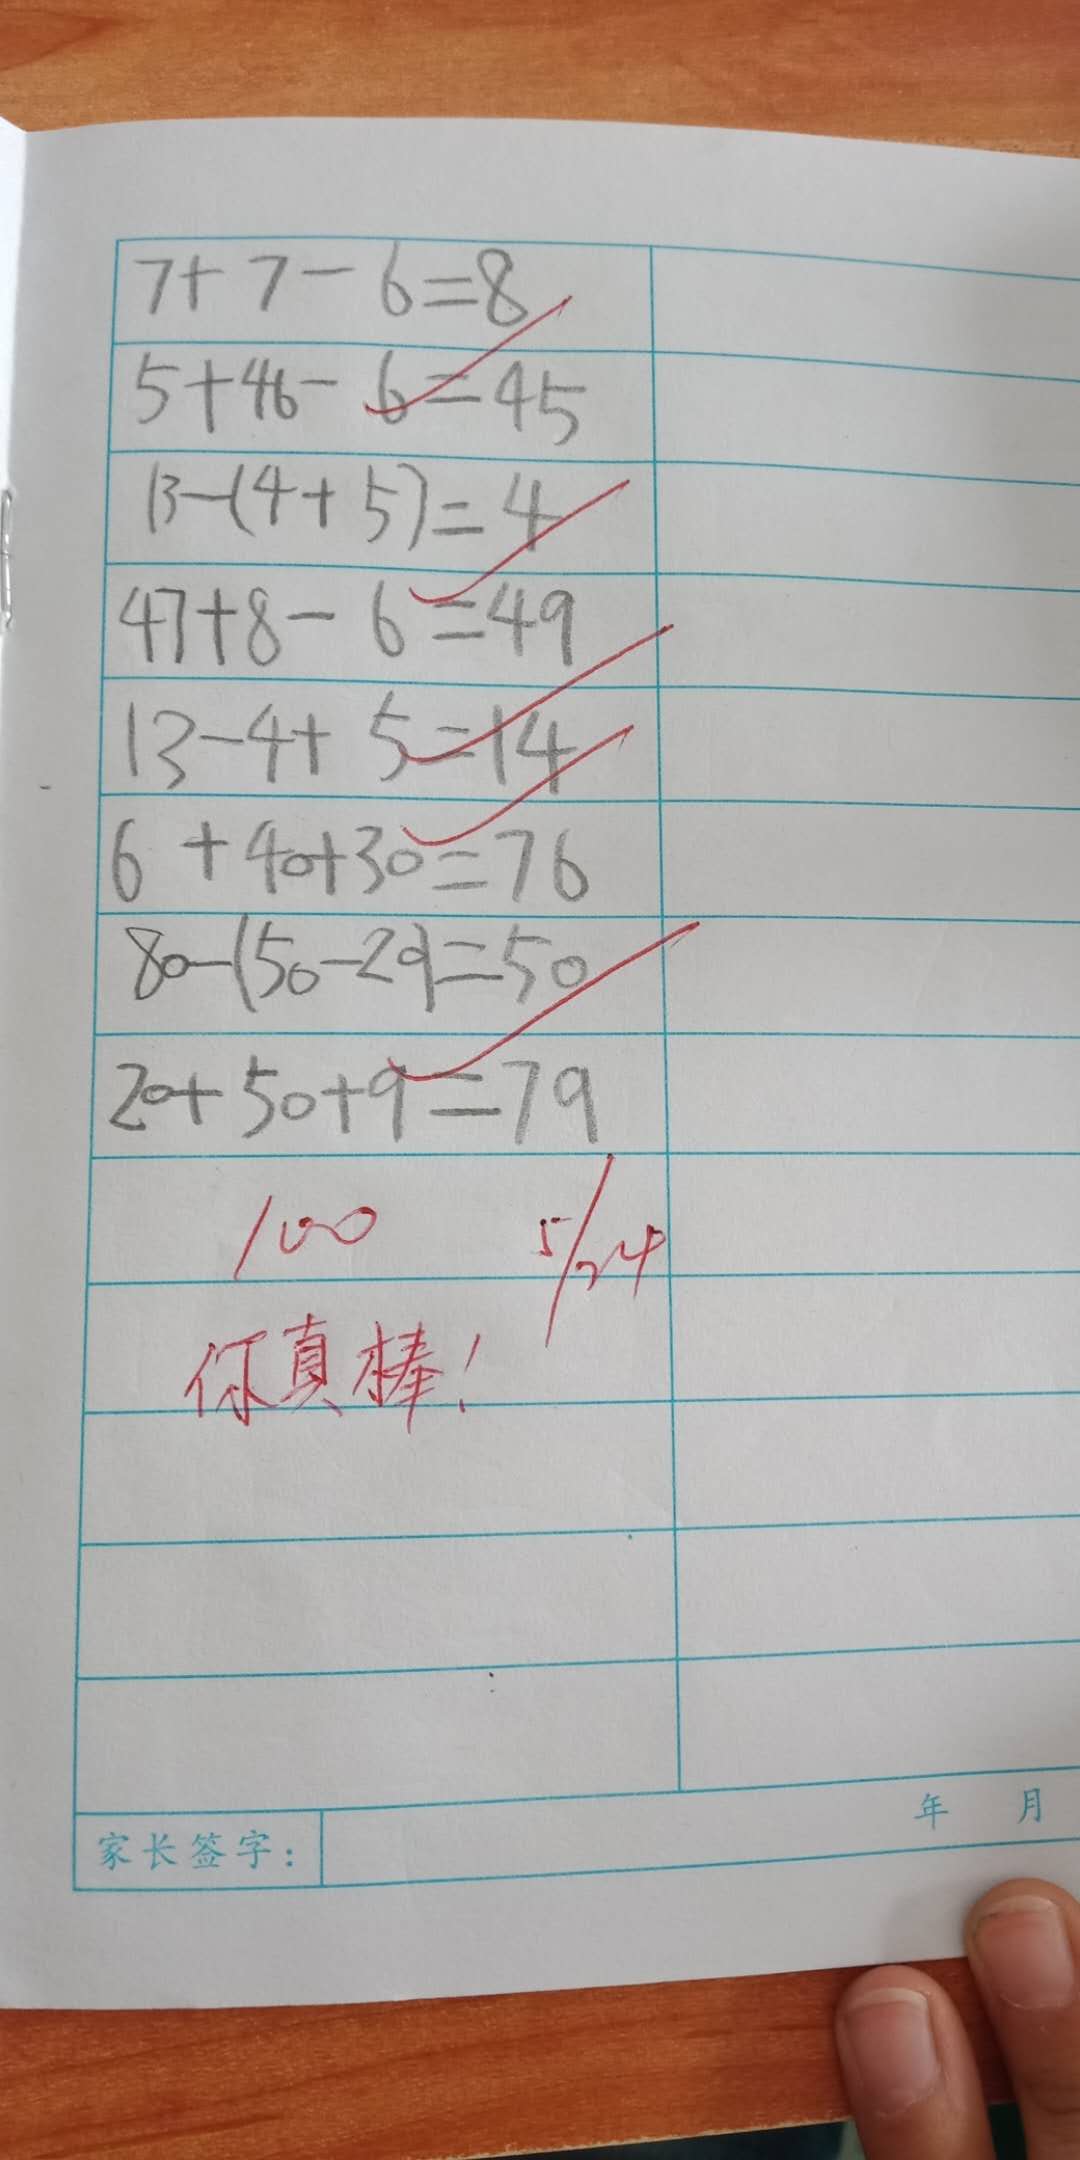 7+7-6=8
5+46-6=45
13-(4+5)=4
47+8-6=49
13-4+5=14
6+40+30=76
80-(50-20)=50
20+50+9=79
100 5/24
你真棒!
年 月
家长签字: